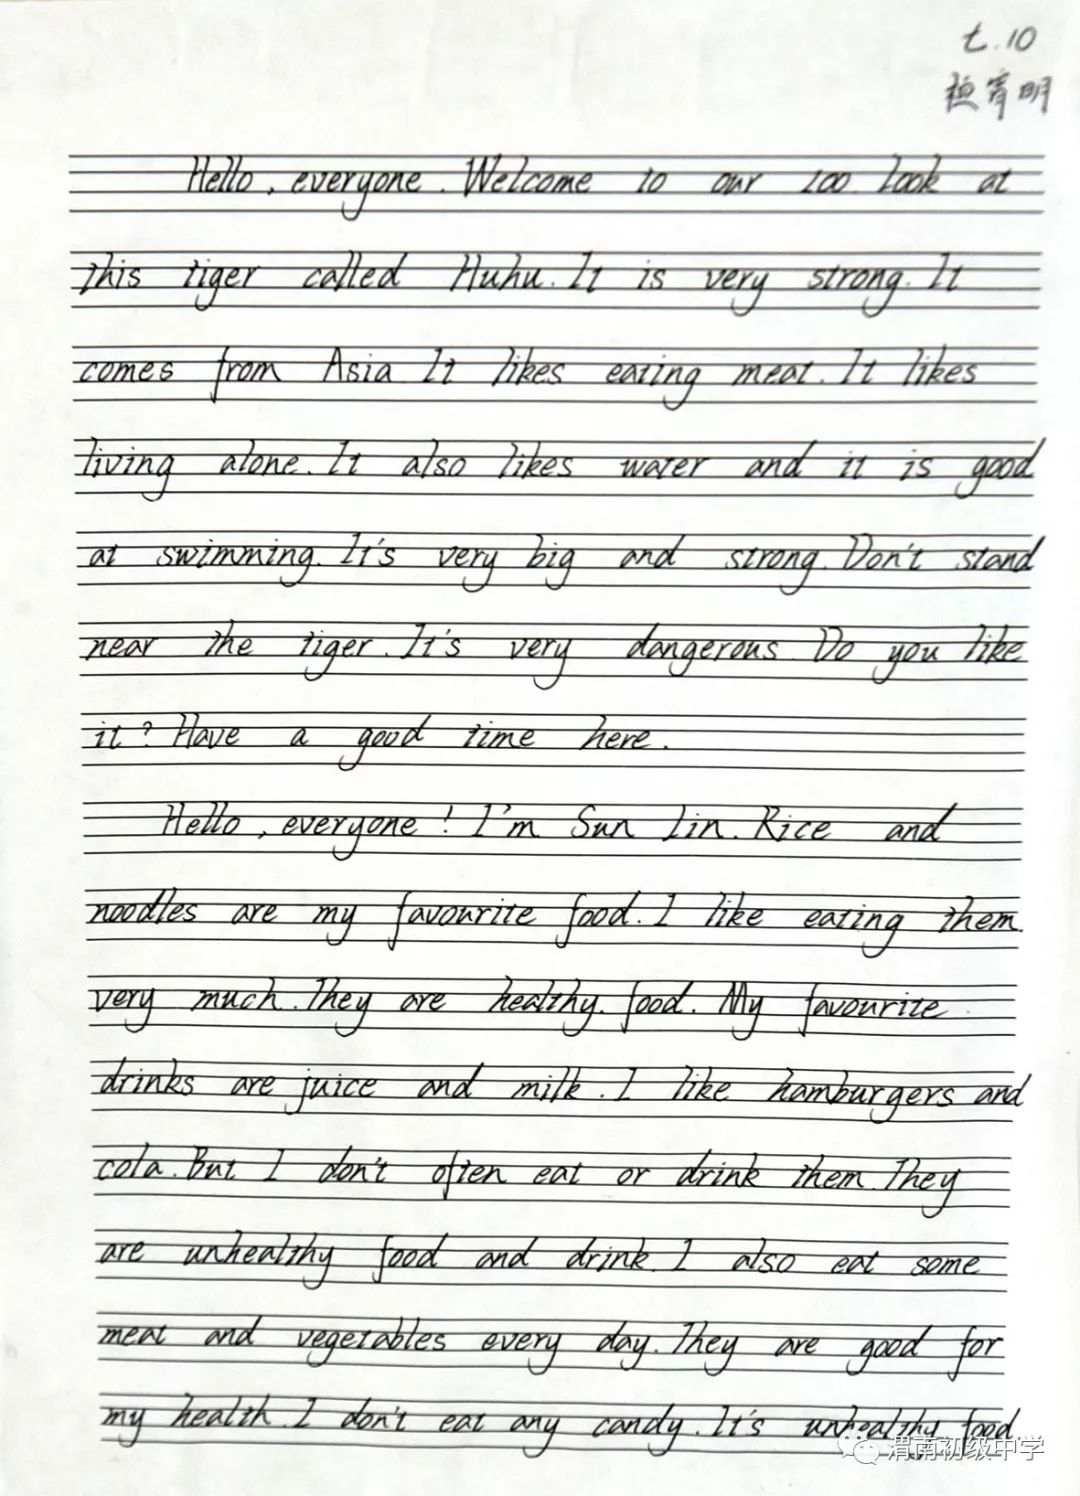 七.10
桓寄明
Hello, everyone. Welcome to our zoo. Look at
this tiger called Huhu. It is very strong. It
comes from Asia. It likes eating meat. It likes
living alone. It also likes water and it is good
at swimming. It's very big and strong. Don't stand
near the tiger. It's very dangerous. Do you like
it? Have a good time here.
Hello, everyone! I'm Sun Lin. Rice and
noodles are my favourite food. I like eating them
very much. They are healthy food. My favourite
drinks are juice and milk. I like hamburgers and
cola. But I don't often eat or drink them. They
are unhealthy food and drink. I also eat some
meat and vegetables every day. They are good for
my health. I don't eat any candy. It's unhealthy food.
渭南初级中学